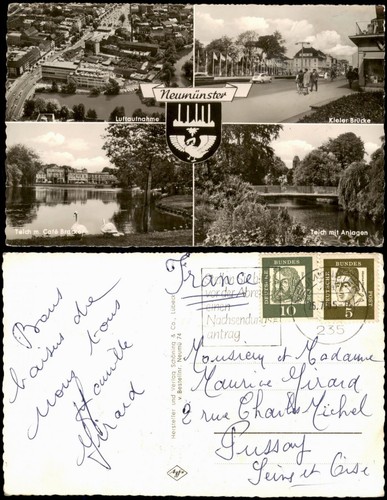 Neumünster
Luftaufnahme
Kieler Brücke
Teich m. Café
Teich mit Anlagen
France
vor der
einen
Nachsendungs-
antrag
235
DEUTSCHE BUNDESPOST
10
DEUTSCHE BUNDESPOST
5
Bons
baisers de
nous tous
Famille
Gérard
Hersteller und Verlag Schöning & Co., Lübeck
Bestellnr. Neumü 74
Agfa
Monsieur et Madame
Maurice Girard
2 rue Charles Michel
Pussay
Seine et Oise